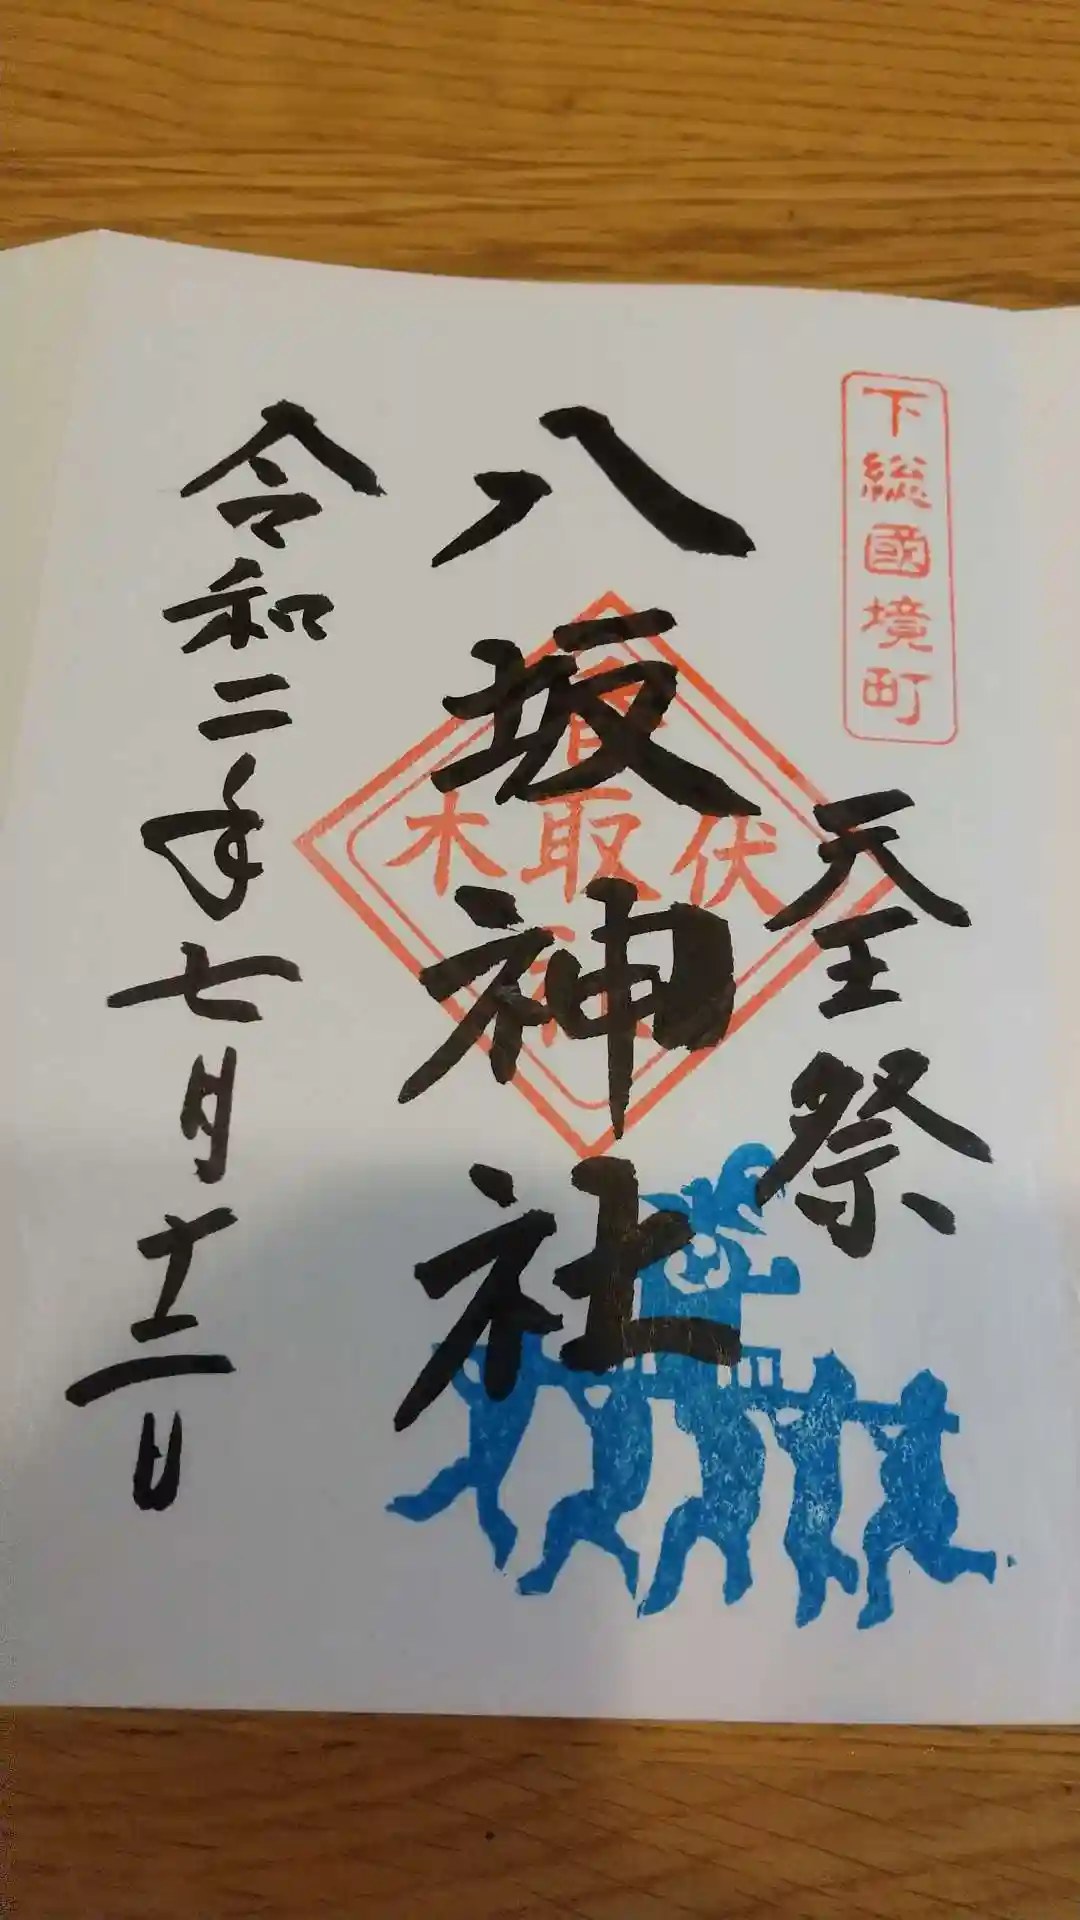 下総國境町
天王祭
八坂神社
伏木
香取
令和二年七月十二日